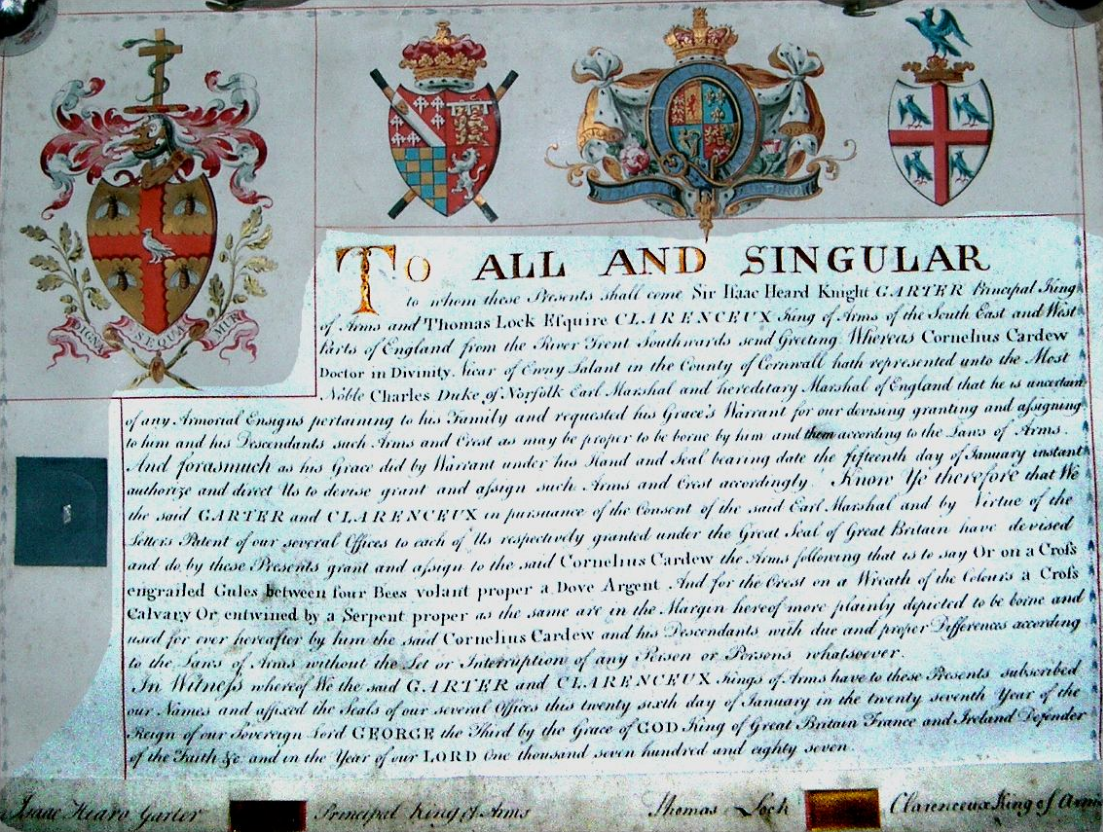 DIGNE SEQUA MUR
To ALL AND SINGULAR
to whom these Presents shall come Sir Iſaac Heard Knight GARTER Principal King
of Arms and Thomas Lock Eſquire CLARENCEUX King of Arms of the South East and West
Parts of England from the River Trent Southwards send Greeting Whereas Cornelius Cardew
Doctor in Divinity. Vicar of Ewny Lalant in the County of Cornwall hath represented unto the Most
Noble Charles Duke of Norfolk Earl Marshal and hereditary Marshal of England that he is uncertain
of any Armorial Ensigns pertaining to his Family and requested his Grace's Warrant for our devising granting and aſsigning
to him and his Descendants such Arms and Crest as may be proper to be borne by him and them according to the Laws of Arms.
And forasmuch as his Grace did by Warrant under his Hand and Seal bearing date the fifteenth day of January instant
authorize and direct Us to devise grant and aſsign such Arms and Crest accordingly Know Ye therefore that We
the said GARTER and CLARENCEUX in pursuance of the Consent of the said Earl Marshal and by Virtue of the
Letters Patent of our several Offices to each of Us respectively granted under the Great Seal of Great Britain have devised
and do by these Presents grant and aſsign to the said Cornelius Cardew the Arms following that is to say Or on a Croſs
engrailed Gules between four Bees volant proper a Dove Argent And for the Crest on a Wreath of the Colours a Croſs
Calvary Or entwined by a Serpent proper as the same are in the Margin hereof more plainly depicted to be borne and
used for ever hereafter by him the said Cornelius Cardew and his Descendants with due and proper Differences according
to the Laws of Arms without the Let or Interruption of any Person or Persons whatsoever.
In Witneſs whereof We the said GARTER and CLARENCEUX Kings of Arms have to these Presents subscribed
our Names and affixed the Seals of our several Offices this twenty sixth day of January in the twenty seventh Year of the
Reign of our Sovereign Lord GEORGE the Third by the Grace of GOD King of Great Britain France and Ireland Defender
of the Faith &c and in the Year of our LORD One thousand seven hundred and eighty seven.
Isaac Heard Garter Principal King of Arms Thomas Lock Clarenceux King of Arms